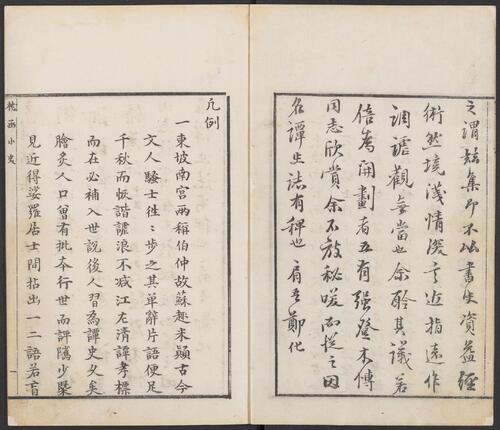 之謂茲集即不必書生資益經
術然境淺情深言近指遠作
調謔觀無當也余聆其議若
開劃者五有強登木傳
同志欣賞余不敢秘而從之因
名譚生誌有稗也肩吾鄭化
凡例
一東坡南宮兩稱伯仲故蘇趣米顛古今
文人騷士徃〻步之其單辭片語便足
千秋而恢諧謔浪不減江左清譚孝標
而在必補入世說後人習為譚史久矣
膾炙人口曾有批本行世而評隲少槩
見近得娑羅居士間拈出一二語若盲
枕函小史
一